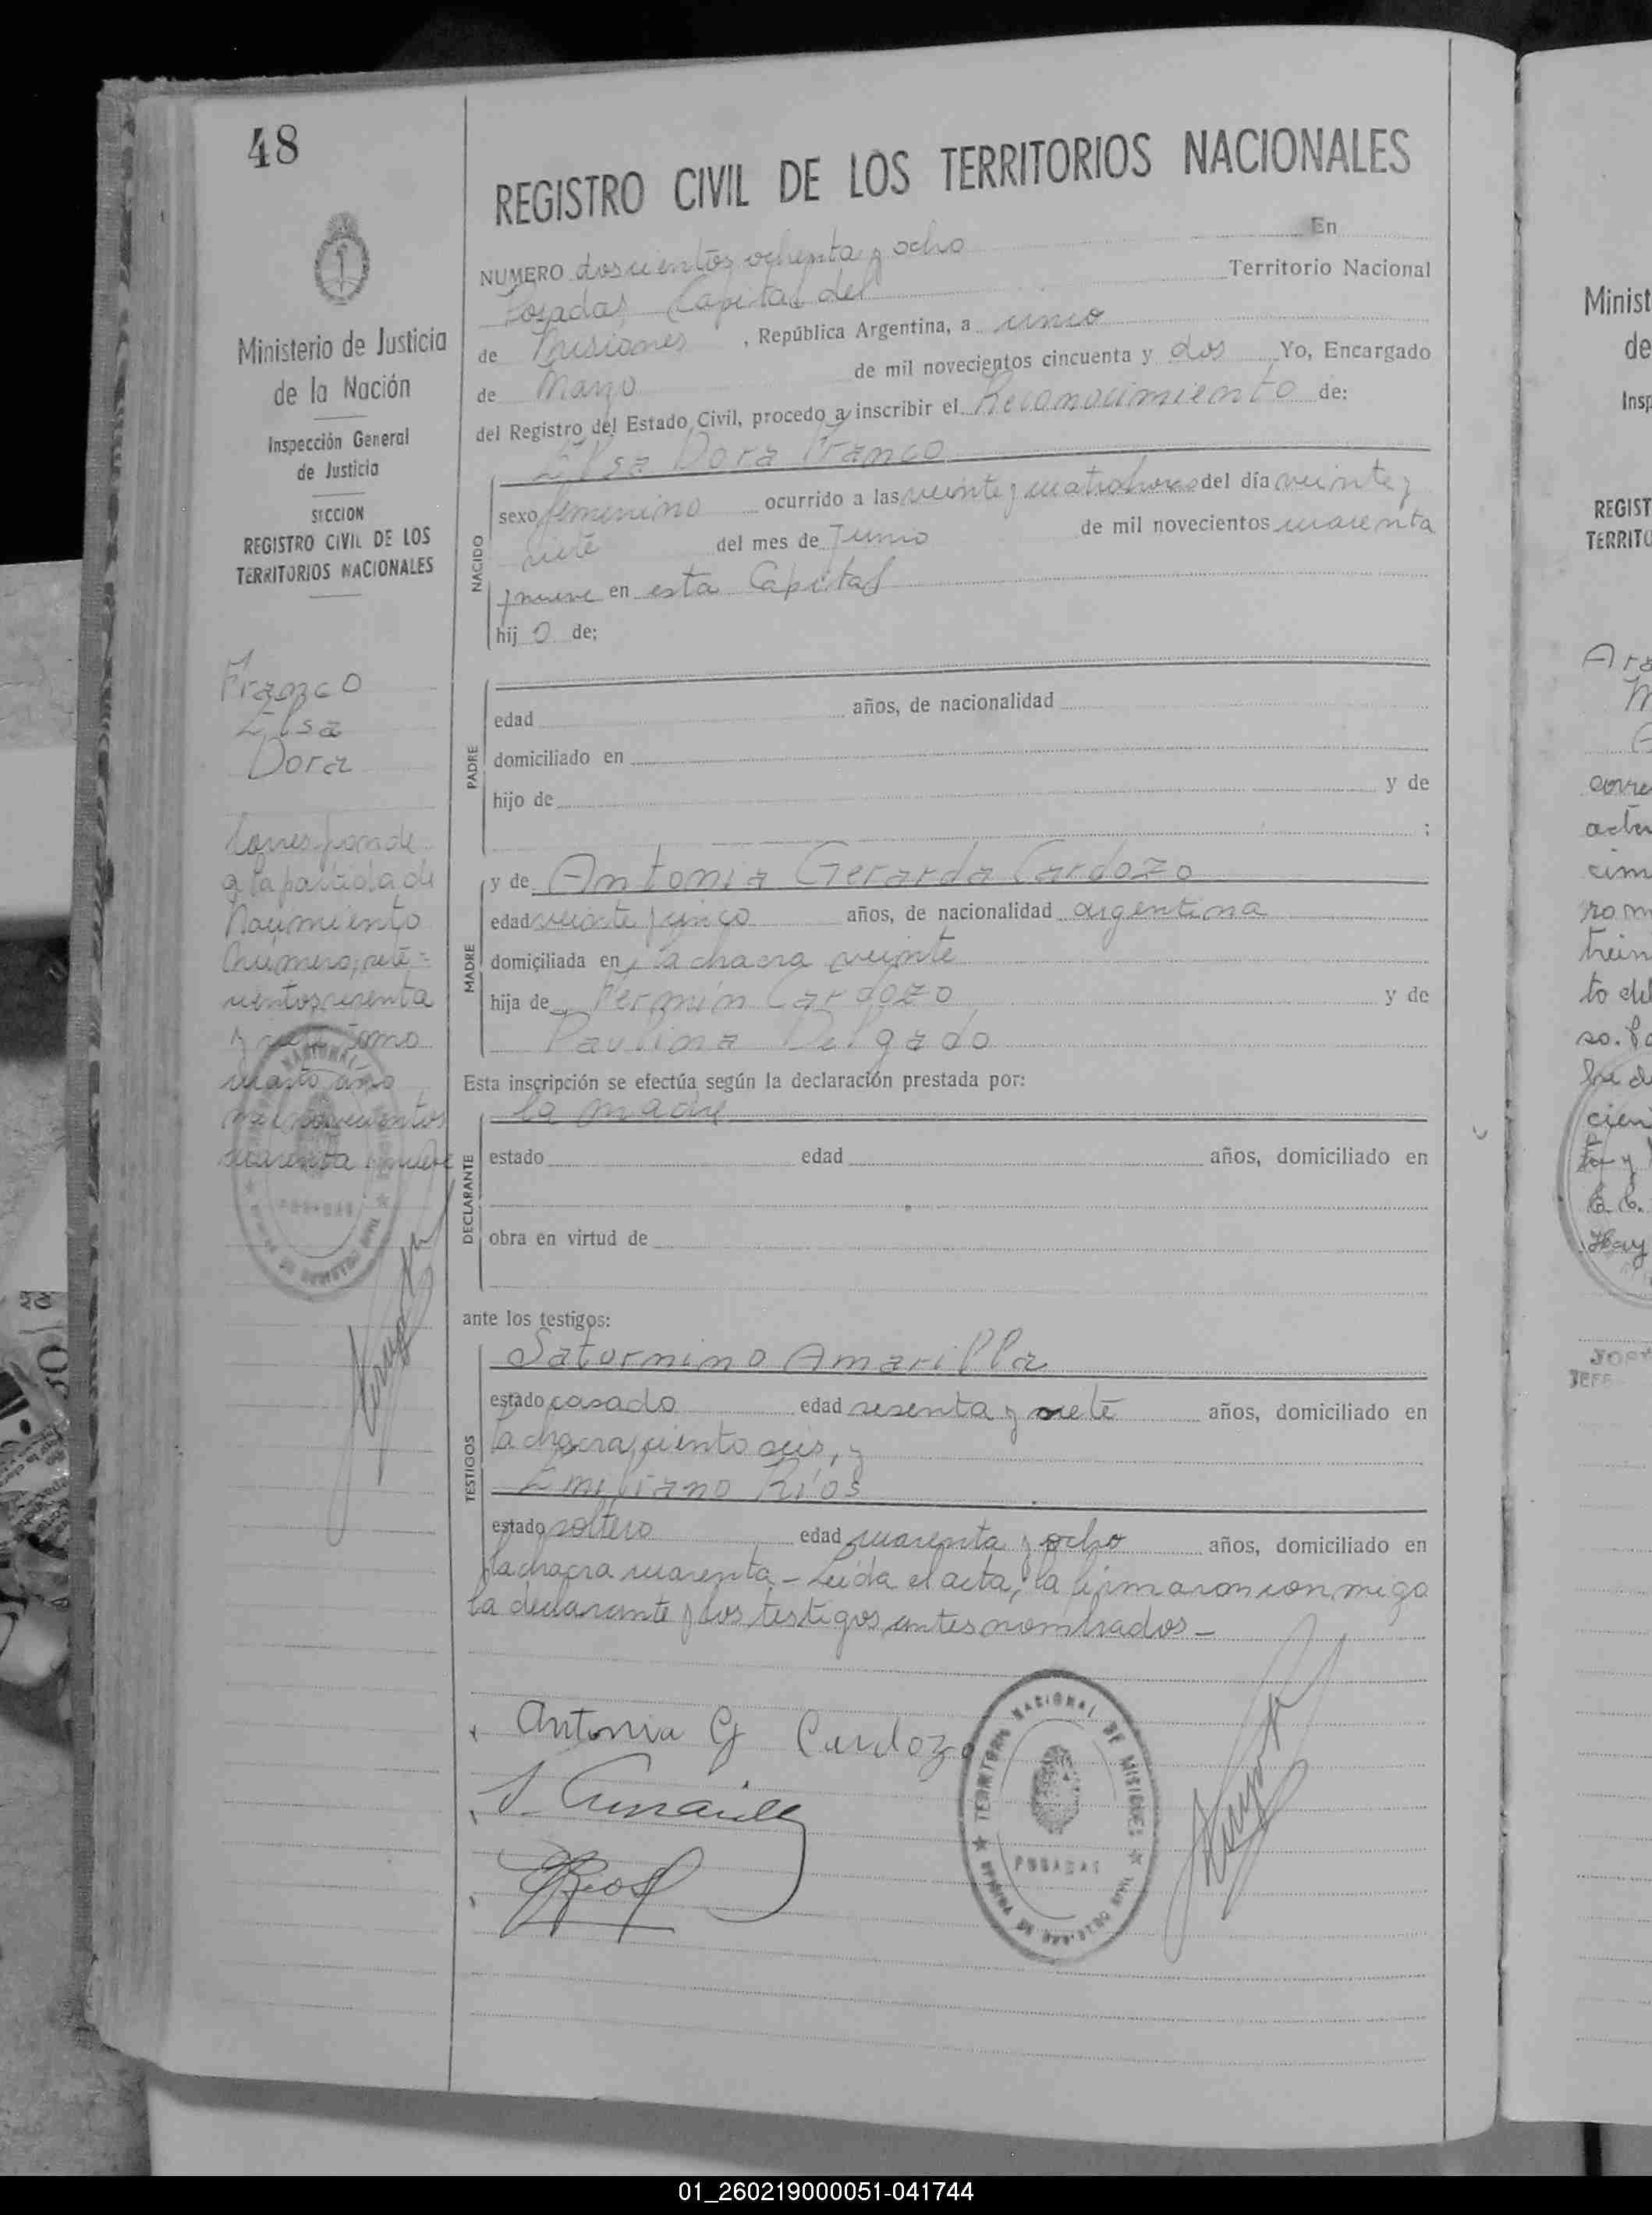 48
REGISTRO CIVIL DE LOS TERRITORIOS NACIONALES
Ministerio de Justicia
de la Nación
Inspección General
de Justicia
SECCION
REGISTRO CIVIL DE LOS
TERRITORIOS NACIONALES
Franco
Elsa
Dora
Corresponde
a la partida de
Nacimiento
Número, sete=
cientos sesenta
y siete tomo
cuarto año
mil novecientos
cuarenta y nueve
NUMERO doscientos ochenta y ocho En
Posadas, Capital del Territorio Nacional
de Misiones, República Argentina, a cinco
de Marzo de mil novecientos cincuenta y dos Yo, Encargado
del Registro del Estado Civil, procedo a inscribir el Reconocimiento de:
Elsa Dora Franco
NACIDO
sexo femenino ocurrido a las veinte y cuatro horas del día veinte y
siete del mes de Junio de mil novecientos cuarenta
y nueve en esta Capital
hij o de;
PADRE
edad años, de nacionalidad
domiciliado en
hijo de y de
;
MADRE
y de Antonia Gerarda Cardozo
edad veinte y cinco años, de nacionalidad argentina
domiciliada en la chacra veinte
hija de Fermín Cardozo y de
Paulina Delgado
Esta inscripción se efectúa según la declaración prestada por:
la madre
DECLARANTE
estado edad años, domiciliado en
obra en virtud de
ante los testigos:
TESTIGOS
Saturnino Amarilla
estado casado edad sesenta y siete años, domiciliado en
la chacra ciento seis, y
Emiliano Ríos
estado soltero edad cuarenta y ocho años, domiciliado en
la chacra cuarenta - Leída el acta, la firmaron conmigo
la declarante y los testigos antes nombrados -
Antonia G Cardozo
S. Amarilla
E Rios
TERRITORIO NACIONAL DE MISIONES
POSADAS
OFICINA DE REGISTRO CIVIL
Minist
de
Insp
REGIST
TERRITO
Ara
M
corre
actu
cim
ro m
trein
to del
so.
cien
ta y
Hay
JEFE
01_260219000051-041744